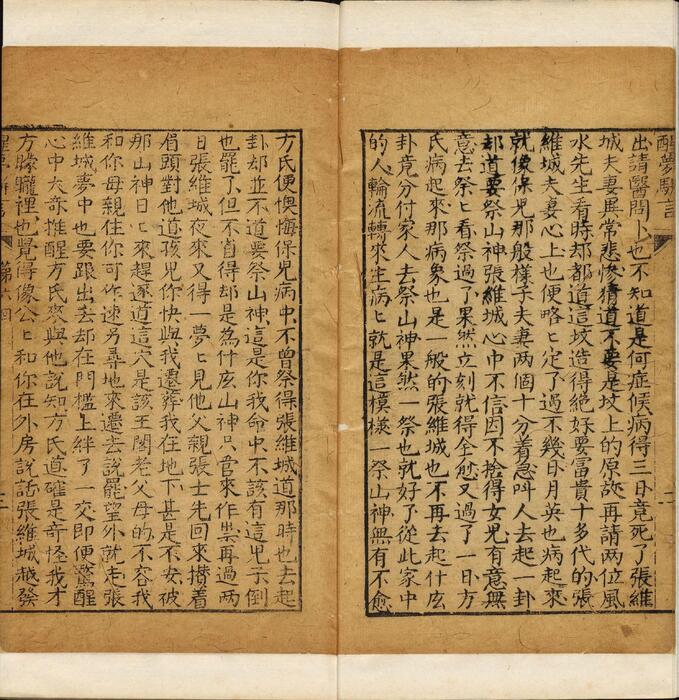 醒夢駢言
出請醫問卜也不知道是何症候病得三日竟死了張維
城夫妻異常悲慘猜道不要是坟上的原故再請兩位風
水先生看時却都道這坟造得絕好要富貴十多代的張
維城夫妻心上也便略ヒ定了過不幾日月英也病起來
就像保兒那般樣子夫妻兩個十分着急叫人去起一卦
却道要祭山神張維城心中不信因不捨得女兒有意無
意去祭ヒ看祭過了果然立刻就得全愈又過了一日方
氏病起來那病象也是一般的張維城也不再去起什庅
卦竟分付家人去祭山神果然一祭也就好了從此家中
的人輪流轉來生病ヒ就是這模樣一祭山神無有不愈
方氏便懊悔保兒病中不曾祭得張維城道那時也去起
卦却並不道要祭山神這是你我命中不該有這兒子倒
也罷了但不省得却是為什庅山神只管來作祟再過兩
日張維城夜來又得一夢ヒ見他父親張士先回來攅着
眉頭對他道孩兒你快與我遷葬我在地下甚是不安被
那山神日ヒ來趕逐道這穴是該王閣老父母的不容我
和你母親住你可作速另尋地來遷去說罷望外就走張
維城夢中也要跟出去却在門檻上絆了一交即便驚醒
心中大奇推醒方氏來與他說知方氏道確是奇怪我才
方矇矓裡也覺得像公ヒ和你在外房說話張維城越發
第六回